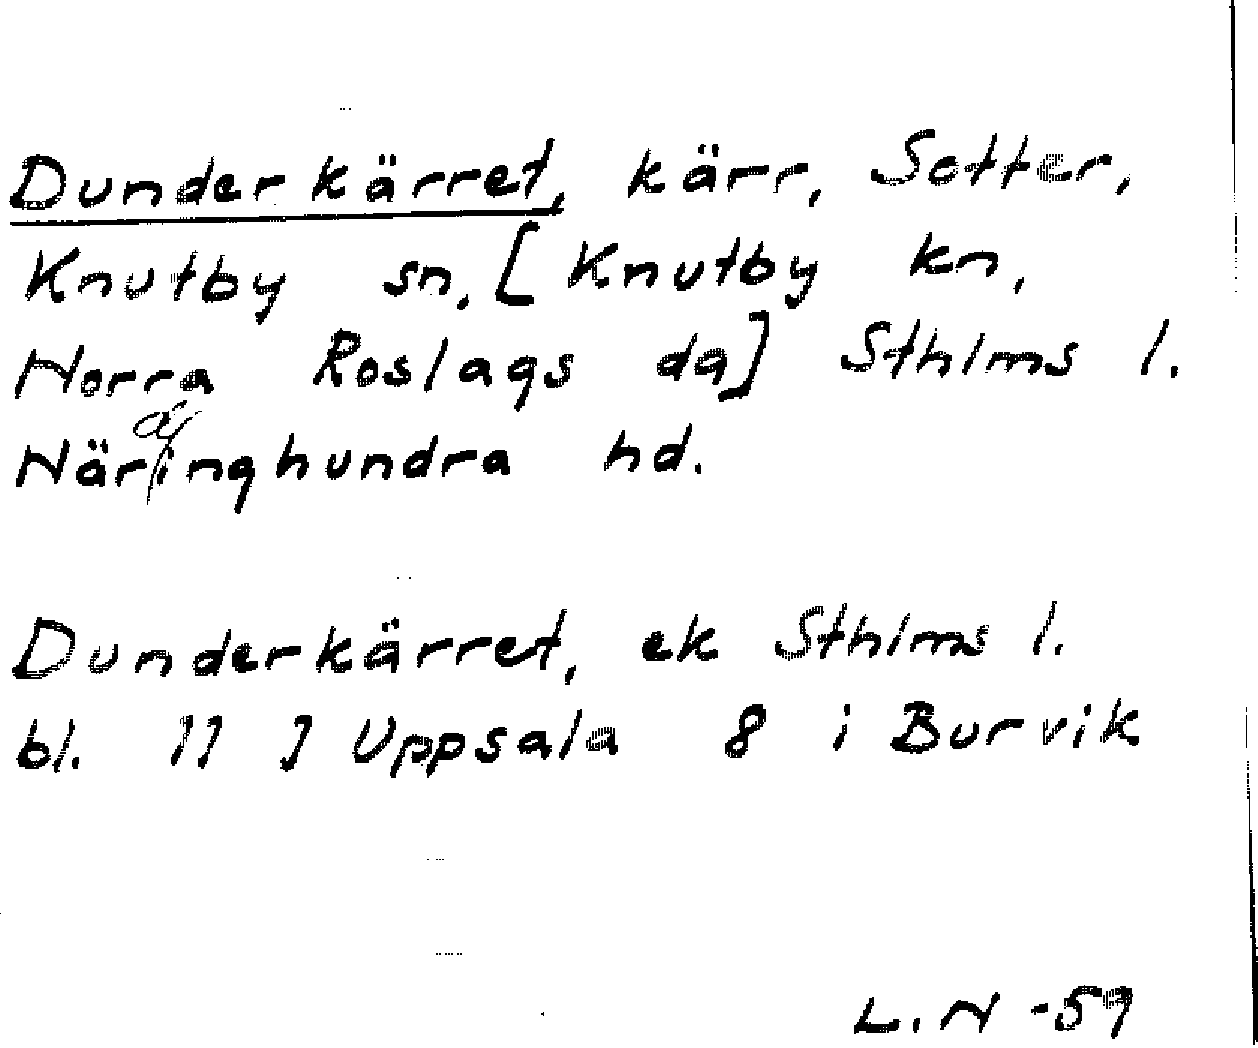 Dunderkärret, kärr, Sotter,
Knutby sn. [Knutby kn,
Norra Roslags dg] Sthlms l.
Närdinghundra hd.
Dunderkärret, ek Sthlms l.
bl. 11 J Uppsala 8 i Burvik
L. N -59